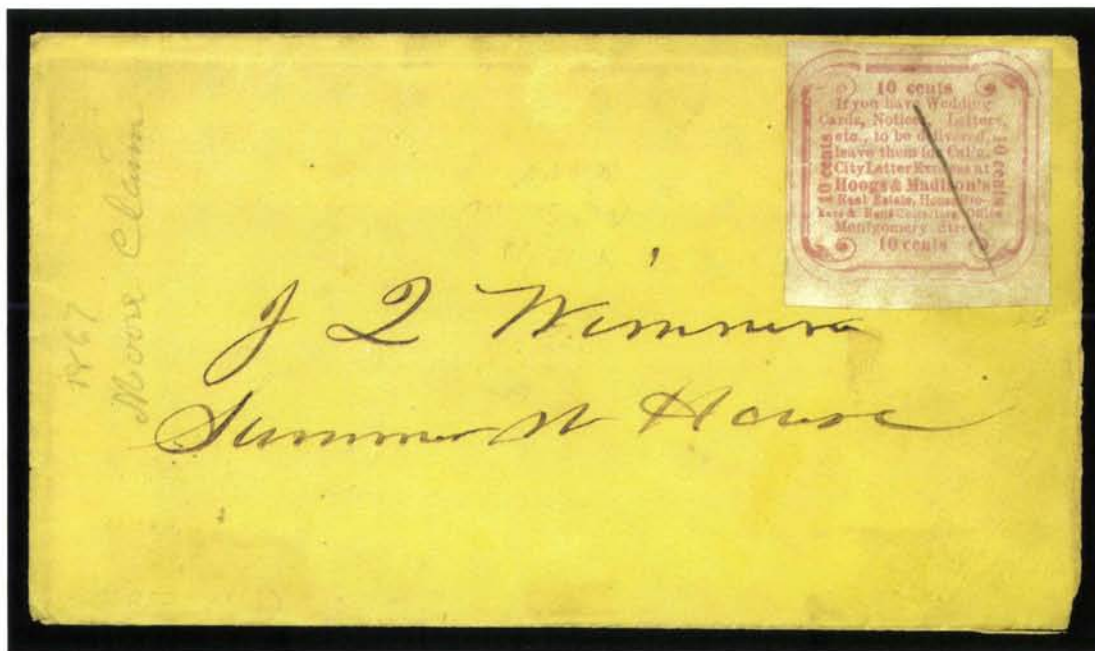 10 cents
If you have Wedding
Cards, Notices, Letters,
etc., to be delivered,
leave them for Cal'a.
City Letter Express at
Hoogs & Madison's
Real Estate, House Bro-
kers & Rent Collecting Office
Montgomery Street.
10 cents
10 cents
10 cents
J Q
House
1867
Moore Claim